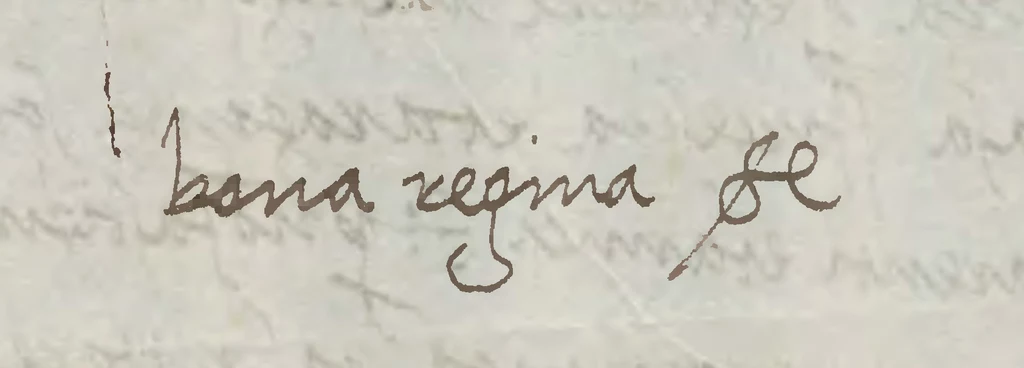 bona regina sſ